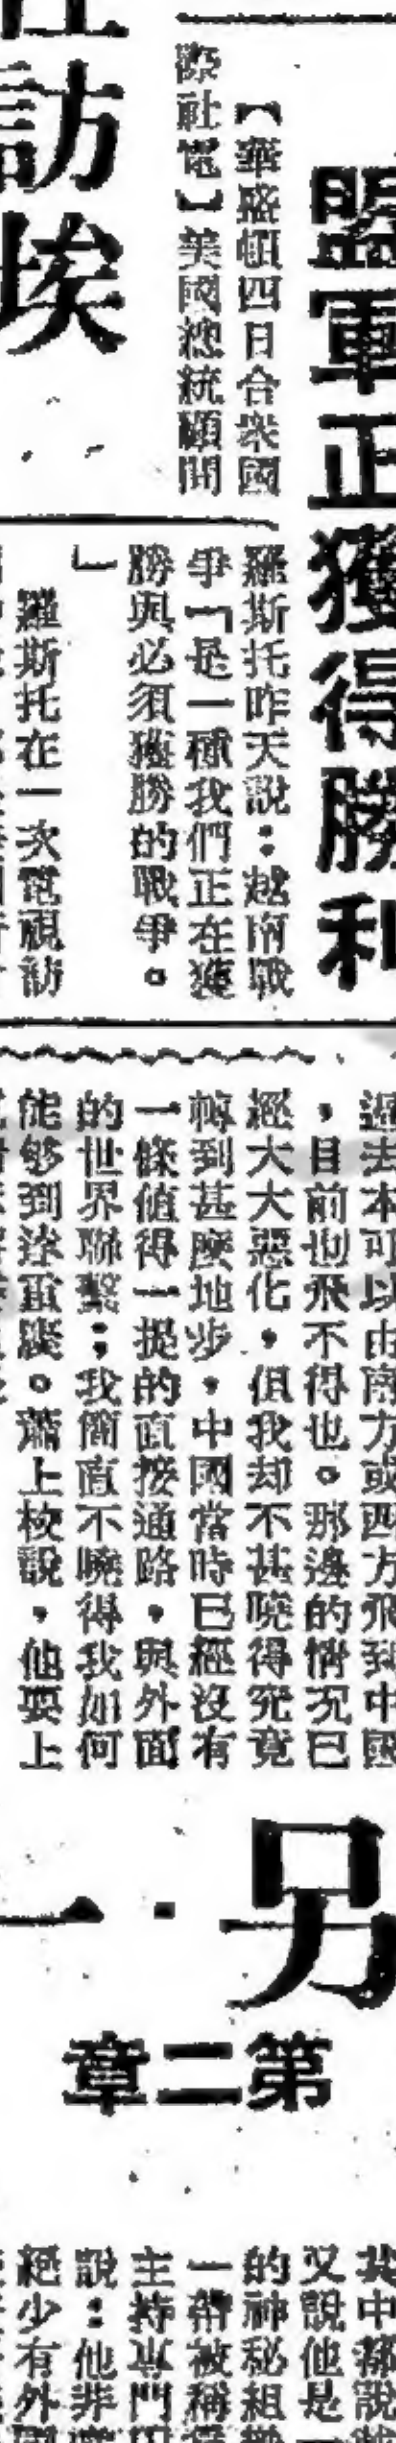 盟軍正獲得勝利
【華盛頓四日合衆國
際社電】美國總統顧問
羅斯托昨天説：越南戰
爭「是一種我們正在獲
勝與必須獲勝的戰爭。
」
羅斯托在一次電視訪
訪埃
過去本可以由南方或西方飛到中國
，目前也飛不得也。那邊的情況已
經大大惡化，但我却不甚曉得究竟
轉到甚麽地步，中國當時已經沒有
一條值得一提的直接通路，與外面
的世界聯繫；我簡直不曉得我如何
能够到達重慶。蕭上校説，他要上
另一
第二章
其中都説
又説他是一
的神秘組
一帶被稱
主持專門
説：他非
絕少有外國